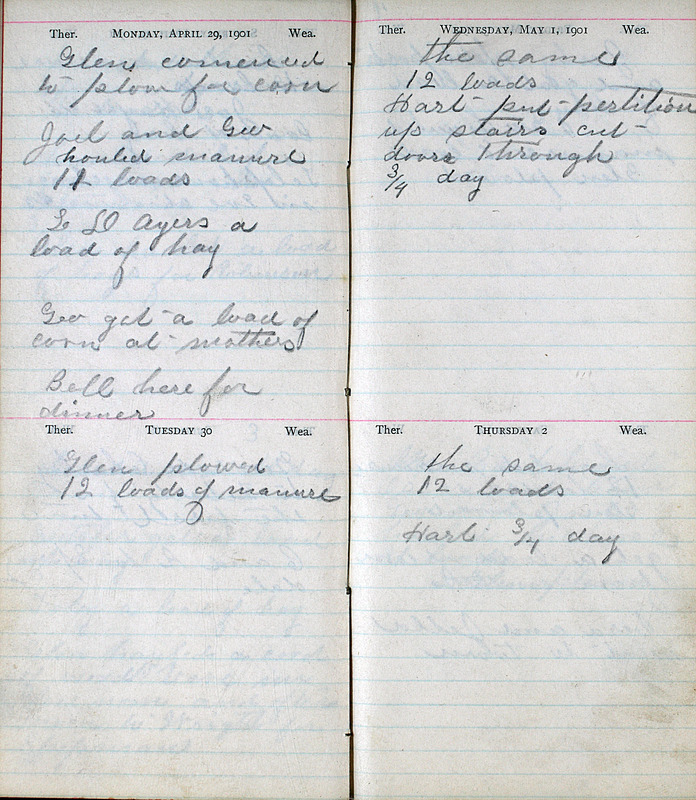 Ther. MONDAY, APRIL 29, 1901 Wea.
Glen comenced
to plow for corn
Joel and Geo
houled manure
11 loads
Ayers a
load of hay
Geo got a load of
corn at mothers
Bell here for
dinner
Ther. TUESDAY 30 Wea.
Glen plowed
12 loads of manure
Ther. WEDNESDAY, MAY 1, 1901 Wea.
the same
12 loads
Hart put pertition
up stairs cut
doors through
3/4 day
Ther. THURSDAY 2 Wea.
the same
12 loads
Hart 3/4 day